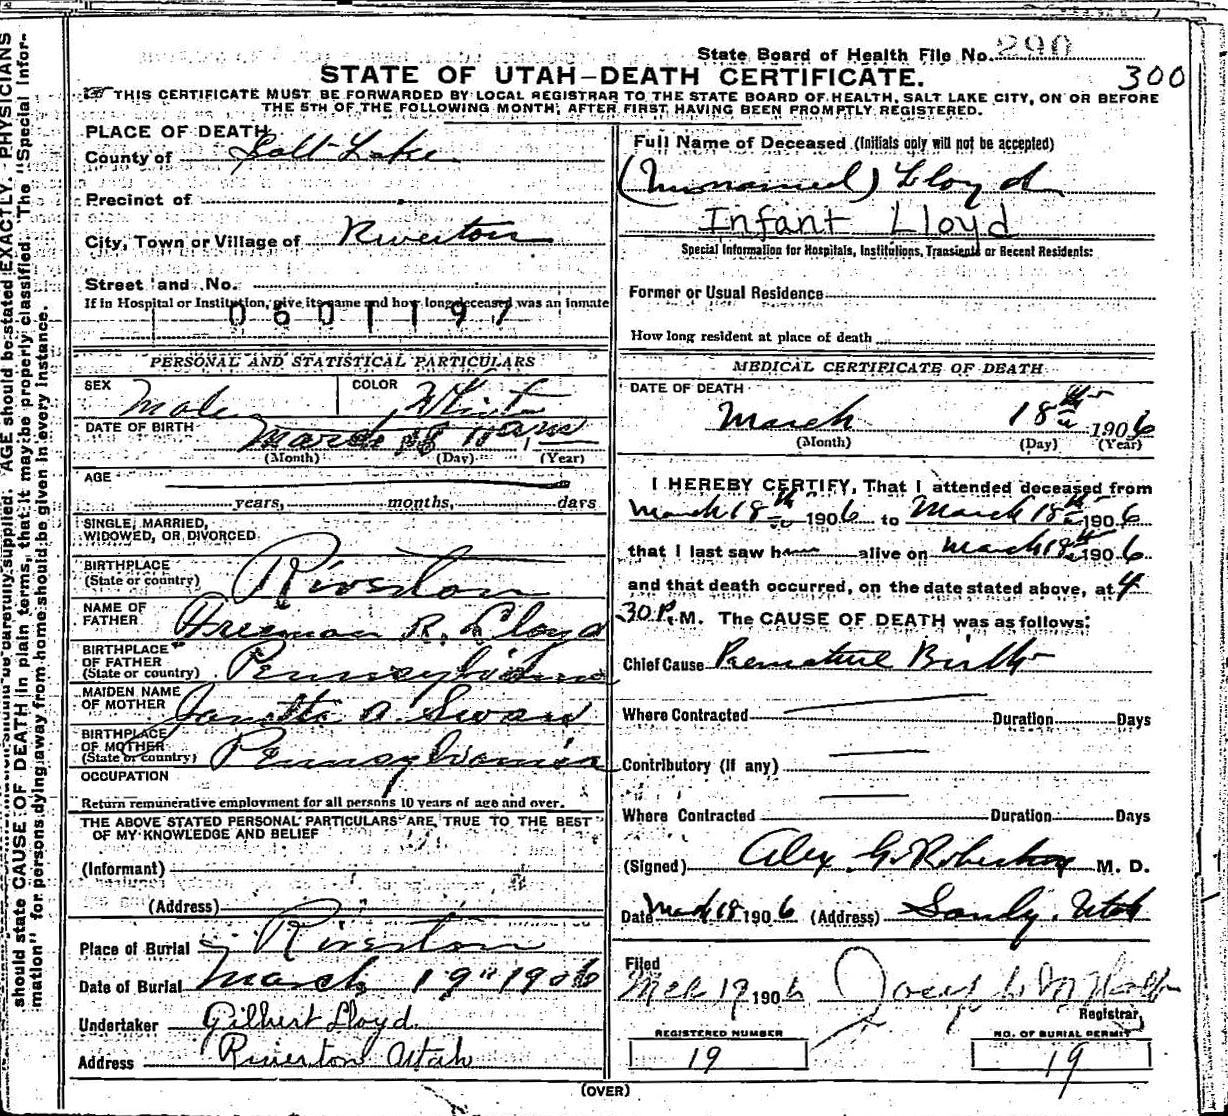 State Board of Health File No. 290
300
STATE OF UTAH—DEATH CERTIFICATE.
THIS CERTIFICATE MUST BE FORWARDED BY LOCAL REGISTRAR TO THE STATE BOARD OF HEALTH, SALT LAKE CITY, ON OR BEFORE
THE 5TH OF THE FOLLOWING MONTH, AFTER FIRST HAVING BEEN PROMPTLY REGISTERED.
PLACE OF DEATH
County of Salt Lake
Precinct of
City, Town or Village of Riverton
Street and No.
If in Hospital or Institution, give its name and how long deceased was an inmate
0601197
PERSONAL AND STATISTICAL PARTICULARS
SEX Male COLOR White
DATE OF BIRTH March 18
(Month) (Day) (Year)
AGE
years, months, days
SINGLE, MARRIED,
WIDOWED, OR DIVORCED
BIRTHPLACE
(State or country) Riverton
NAME OF
FATHER Freeman R. Lloyd
BIRTHPLACE
OF FATHER
(State or country) Pennsylvania
MAIDEN NAME
OF MOTHER Janetta A. Swan
BIRTHPLACE
OF MOTHER
(State or country) Pennsylvania
OCCUPATION
Return remunerative employment for all persons 10 years of age and over.
THE ABOVE STATED PERSONAL PARTICULARS ARE TRUE TO THE BEST
OF MY KNOWLEDGE AND BELIEF
(Informant)
(Address)
Place of Burial Riverton
Date of Burial March 19" 1906
Undertaker Gilbert Lloyd
Address Riverton Utah
Full Name of Deceased (Initials only will not be accepted)
(Unnamed) Lloyd
Infant Lloyd
Special Information for Hospitals, Institutions, Transients or Recent Residents:
Former or Usual Residence
How long resident at place of death
MEDICAL CERTIFICATE OF DEATH
DATE OF DEATH
March 18th 1906
(Month) (Day) (Year)
I HEREBY CERTIFY, That I attended deceased from
March 18th 1906 to March 18th 1906
that I last saw him alive on March 18th 1906
and that death occurred, on the date stated above, at 4
30 P. M. The CAUSE OF DEATH was as follows:
Chief Cause Premature Birth
Where Contracted Duration Days
Contributory (if any)
Where Contracted Duration Days
(Signed) Alex. G. Robertson M. D.
Date Mach 18 1906 (Address) Sandy. Utah
Filed
Mch 19 1906 Joseph
Registrar
REGISTERED NUMBER
19
NO. OF BURIAL PERMIT
19
(OVER)
supplied. AGE should be stated EXACTLY. PHYSICIANS
should state CAUSE OF DEATH in plain terms, that it may be properly classified. The "Special Infor-
mation" for persons dying away from home should be given in every instance.